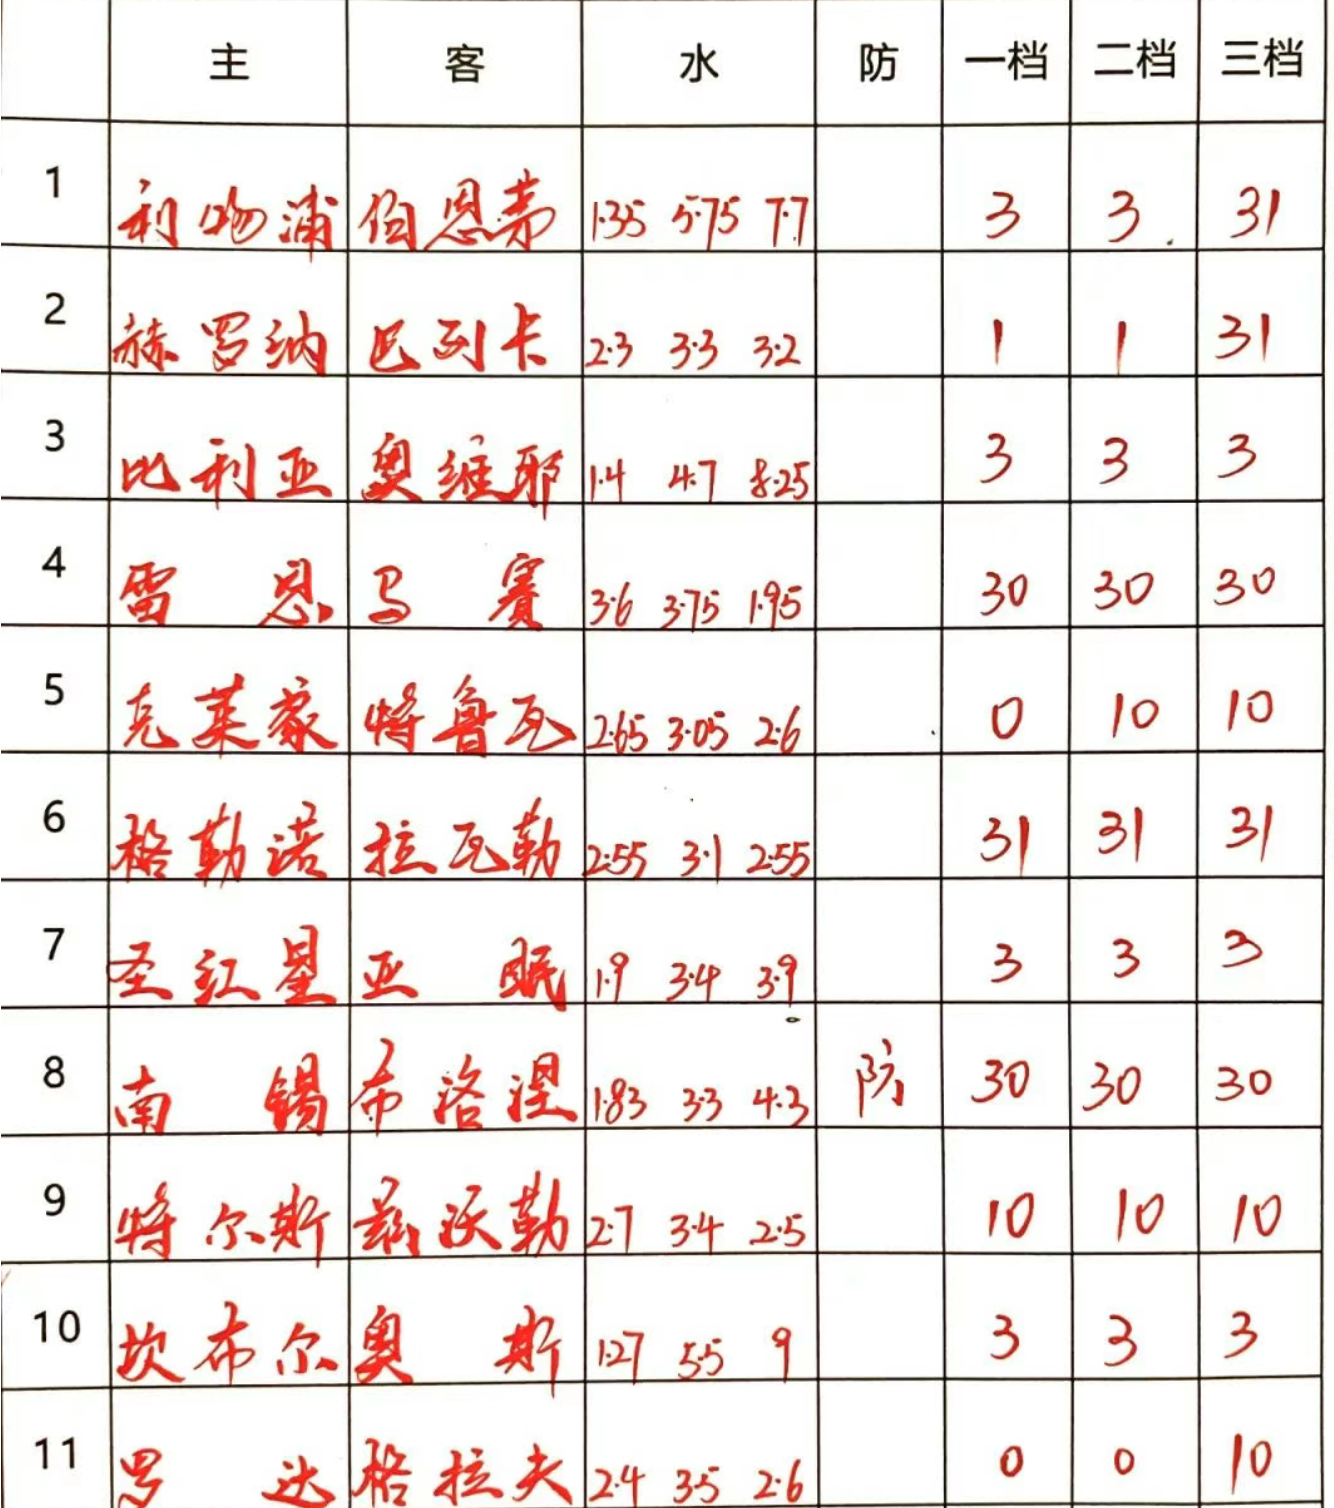 主 客 水 防 一档 二档 三档
1 利物浦 伯恩茅 1.35 5.75 7.7 3 3 31
2 赫罗纳 巴列卡 2.3 3.3 3.2 1 1 31
3 比利亚 奥维耶 1.4 4.7 8.25 3 3 3
4 雷恩 马赛 3.6 3.75 1.95 30 30 30
5 克莱蒙 特鲁瓦 2.65 3.05 2.6 0 10 10
6 格勒诺 拉瓦勒 2.55 3.1 2.55 31 31 31
7 圣红星 亚眠 1.9 3.4 3.9 3 3 3
8 南锡 布洛涅 1.83 3.3 4.3 防 30 30 30
9 特尔斯 兹沃勒 2.7 3.4 2.5 10 10 10
10 坎布尔 奥斯 1.27 5.5 9 3 3 3
11 罗达 格拉夫 2.4 3.5 2.6 0 0 10